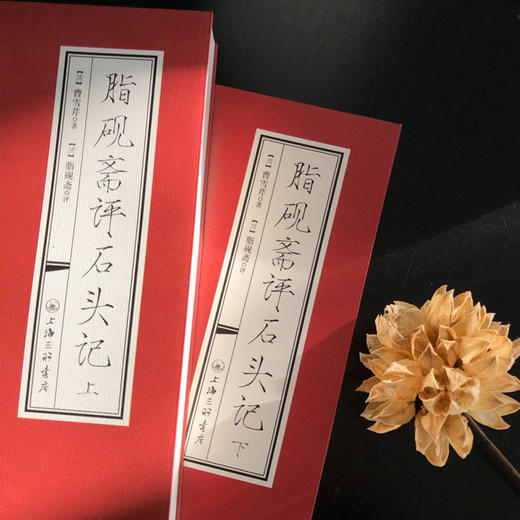 脂砚斋评石头记 上
【清】曹雪芹◎著
【清】脂砚斋◎评
上海三联书店
脂砚斋评石头记 下
【清】曹雪芹◎著
【清】脂砚斋◎评
上海三联书店